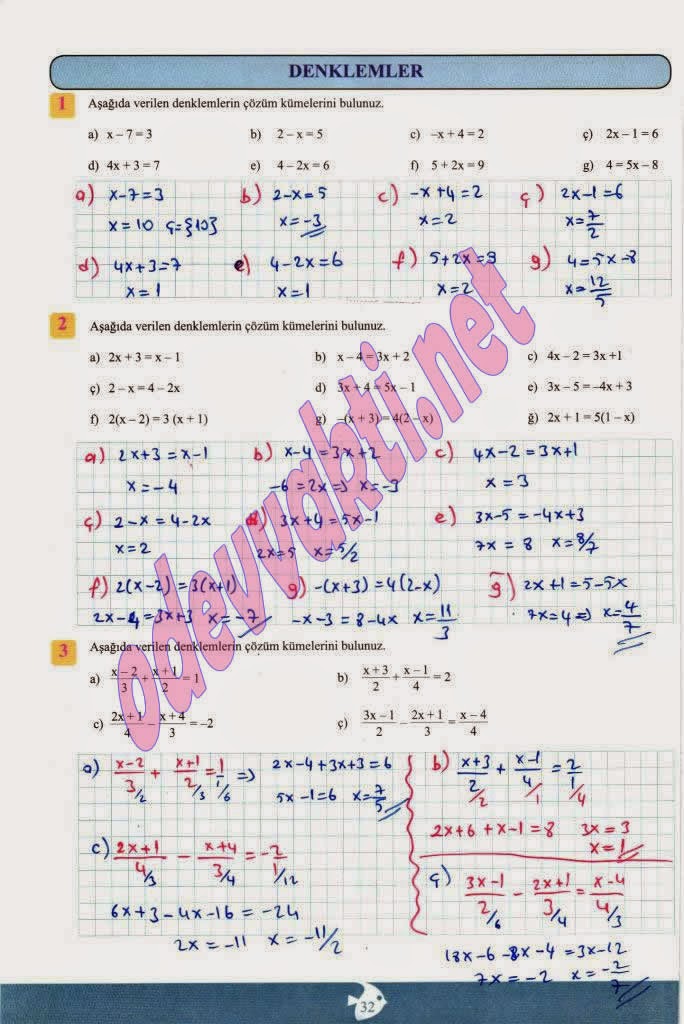 DENKLEMLER
1 Aşağıda verilen denklemlerin çözüm kümelerini bulunuz.
a) x – 7 = 3 b) 2 – x = 5 c) –x + 4 = 2 ç) 2x – 1 = 6
d) 4x + 3 = 7 e) 4 – 2x = 6 f) 5 + 2x = 9 g) 4 = 5x – 8
a) x-7=3 b) 2-x=5 c) -x+4=2 ç) 2x-1=6
x=10 Ç={10} x=-3 x=2 x=7/2
d) 4x+3=7 e) 4-2x=6 f) 5+2x=9 g) 4=5x-8
x=1 x=1 x=2 x=12/5
2 Aşağıda verilen denklemlerin çözüm kümelerini bulunuz.
a) 2x + 3 = x – 1 b) x – 4 = 3x + 2 c) 4x – 2 = 3x +1
ç) 2 – x = 4 – 2x d) 3x + 4 = 5x – 1 e) 3x – 5 = –4x + 3
f) 2(x – 2) = 3 (x + 1) g) –(x + 3) = 4(2 – x) ğ) 2x + 1 = 5(1 – x)
a) 2x+3=x-1 b) x-4=3x+2 c) 4x-2=3x+1
x=-4 -6=2x=> x=-3 x=3
ç) 2-x=4-2x d) 3x+4=5x-1 e) 3x-5=-4x+3
x=2 2x=5 x=5/2 7x=8 x=8/7
f) 2(x-2)=3(x+1) g) -(x+3)=4(2-x) ğ) 2x+1=5-5x
2x-4=3x+3 x=-7 -x-3=8-4x x=11/3 7x=4=> x=4/7
3 Aşağıda verilen denklemlerin çözüm kümelerini bulunuz.
a) x – 2/3 + x + 1/2 = 1 b) x + 3/2 + x – 1/4 = 2
c) 2x + 1/4 – x + 4/3 = –2 ç) 3x – 1/2 – 2x + 1/3 = x – 4/4
a) x-2/3/2 + x+1/2/3 = 1/1/6 => 2x-4+3x+3=6 b) x+3/2/2 + x-1/4/1 = 2/1/4
5x-1=6 x=7/5
2x+6+x-1=8 3x=3
x=1
c) 2x+1/4/3 - x+4/3/4 = -2/1/12 ç) 3x-1/2/6 - 2x+1/3/4 = x-4/4/3
6x+3-4x-16=-24
2x=-11 x=-11/2
18x-6-8x-4=3x-12
7x=-2 x=-2/7
32
odevvakti.net